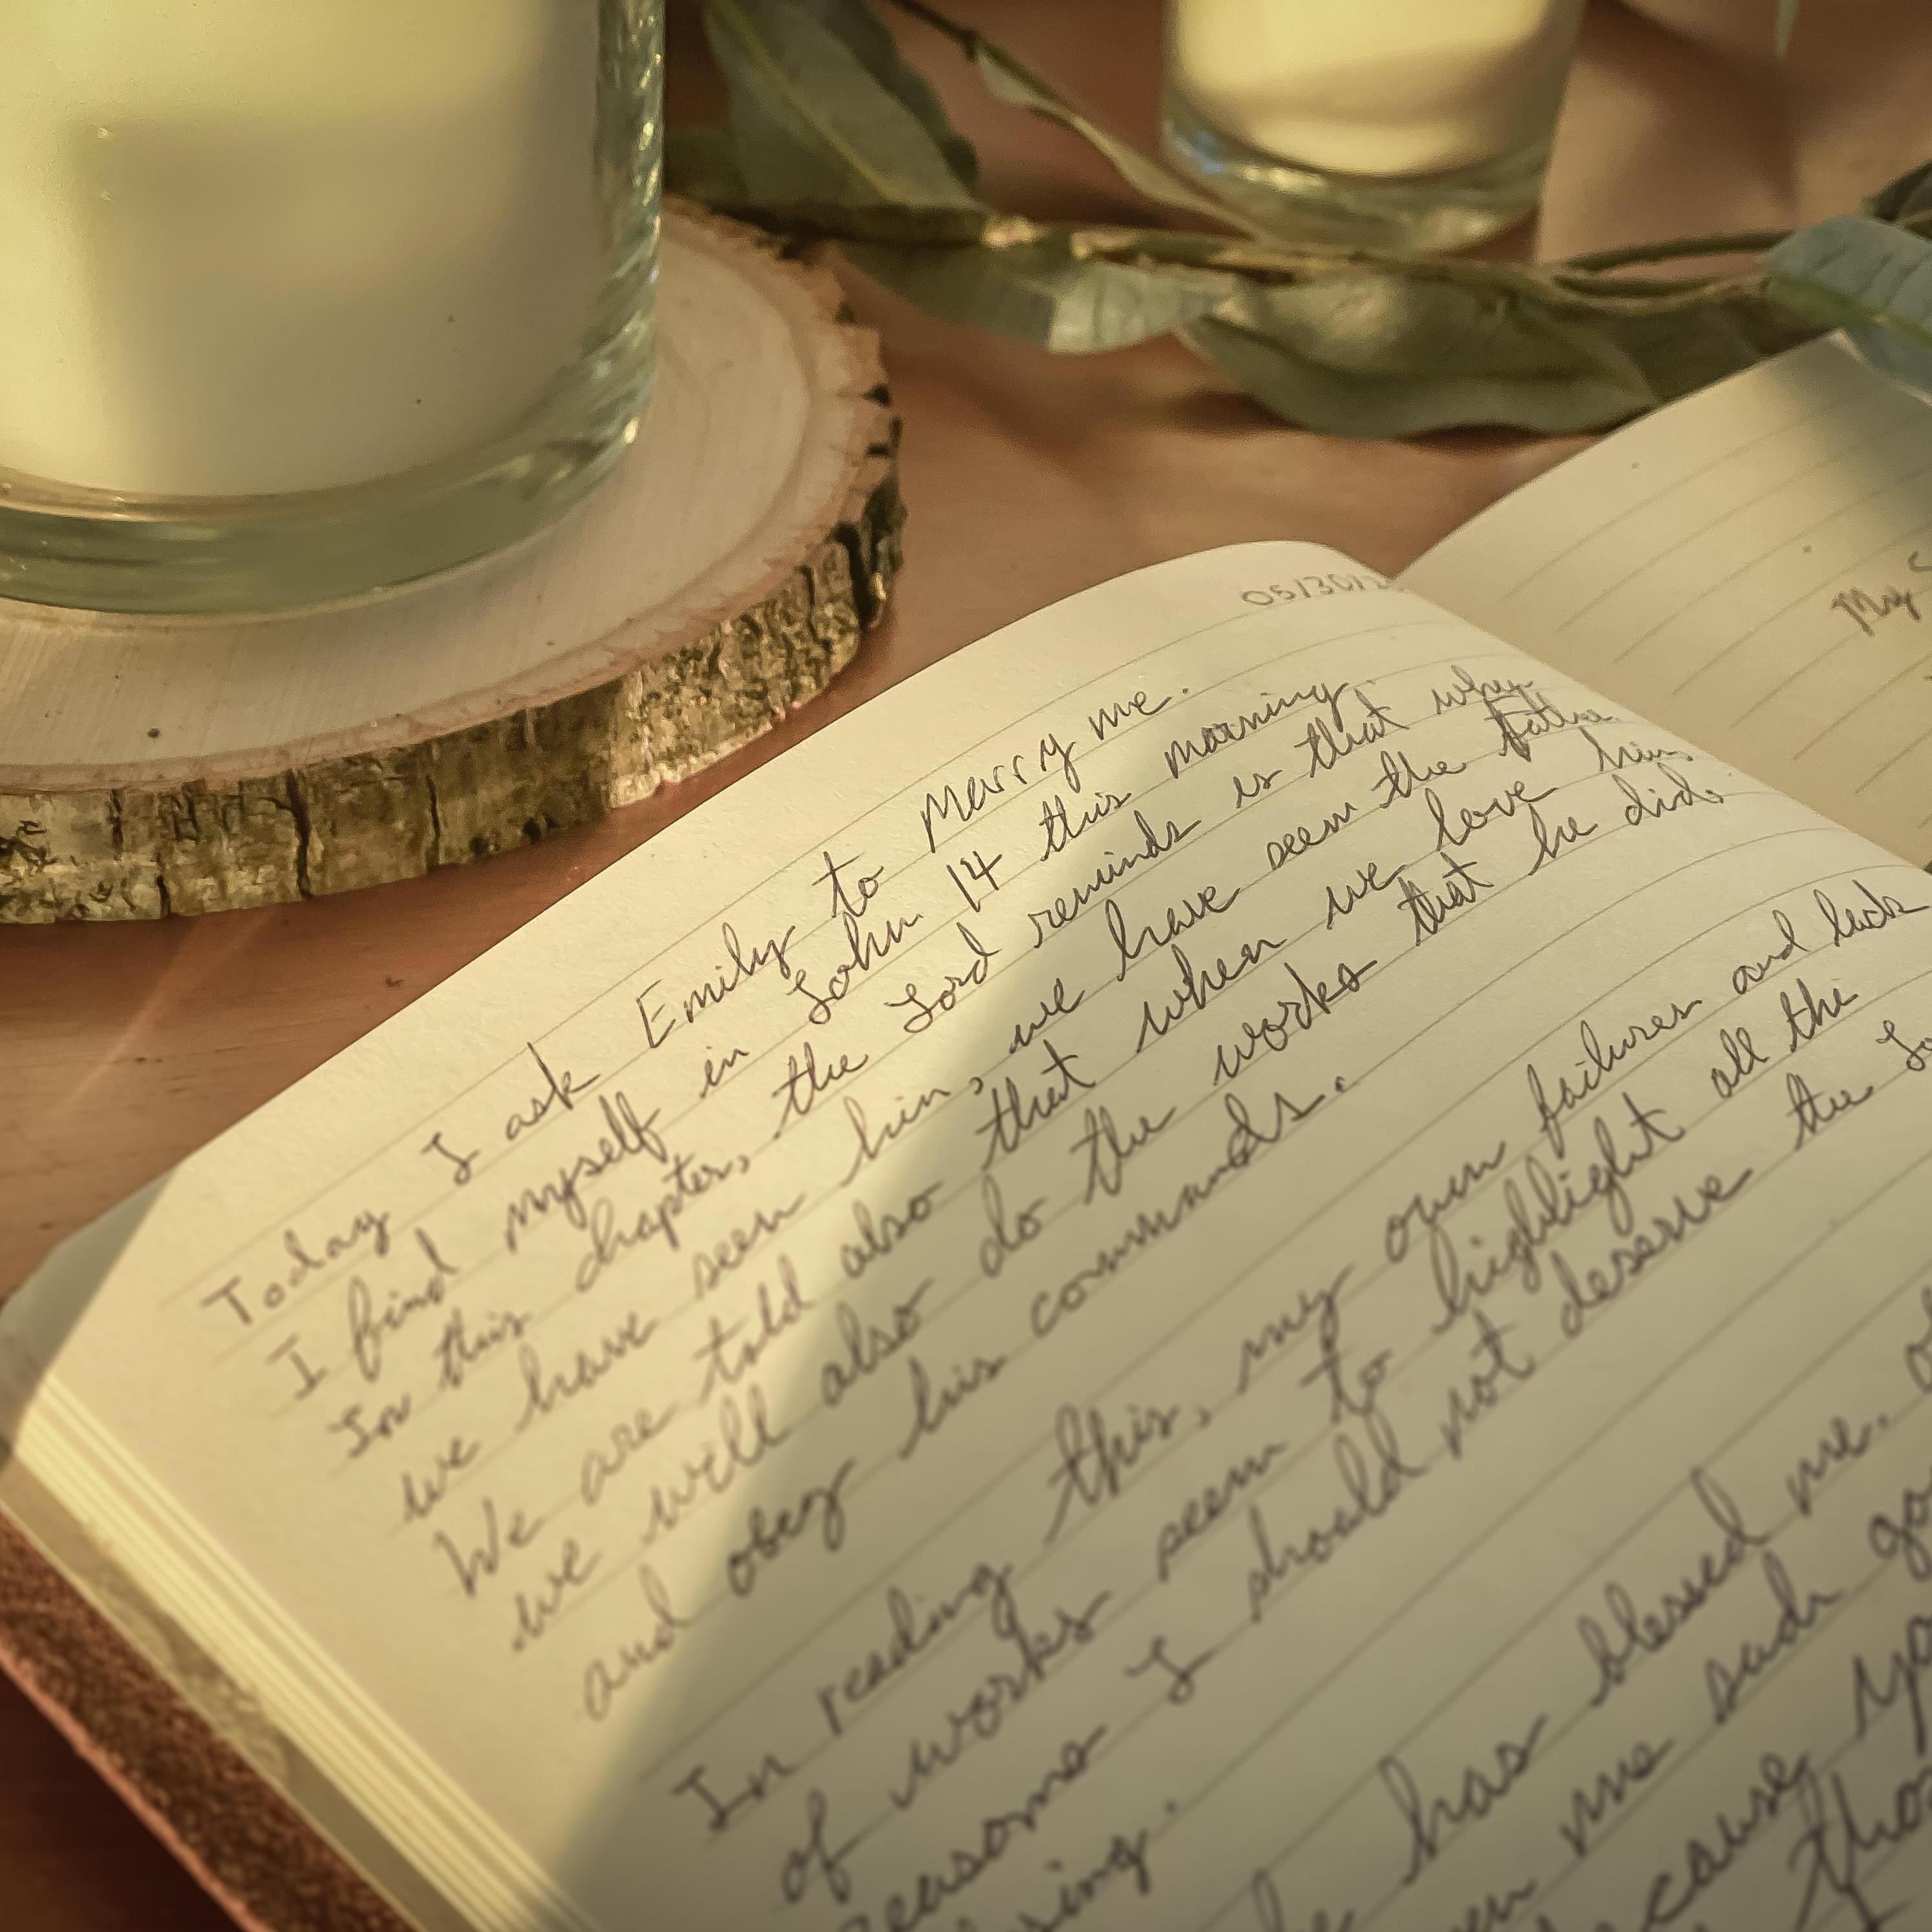 05/30/2
Today I ask Emily to Marry me.
I find myself in John 14 this morning.
In this chapter, the Lord reminds is that when
we have seen him, we have seen the father.
We are told also that when we love him,
we will also do the works that he did.
and obey his commands.
In reading this, my own failures and lack
of works seem to highlight all the
reasons I should not deserve the Lo
has blessed me.
me such go
cause
tho
My